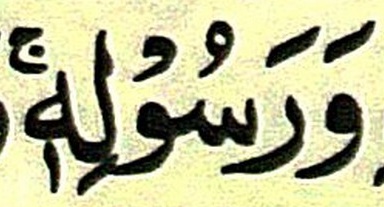 وَرَسُوْلِهٖۚ